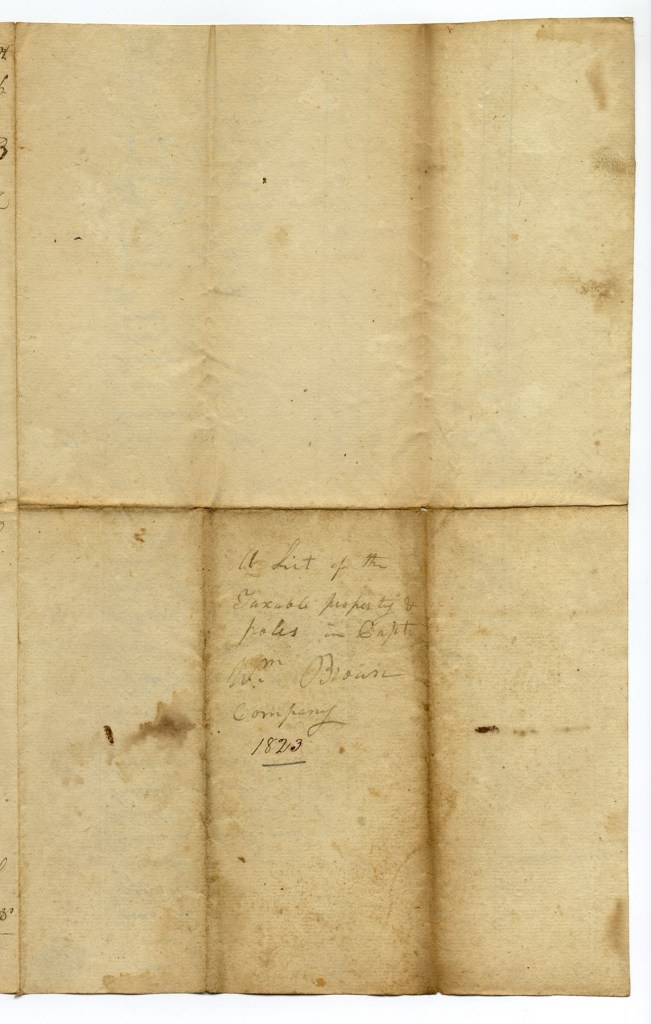 A List of the
Taxable property &
poles in Capt.
Wm. Brown
Company
1823